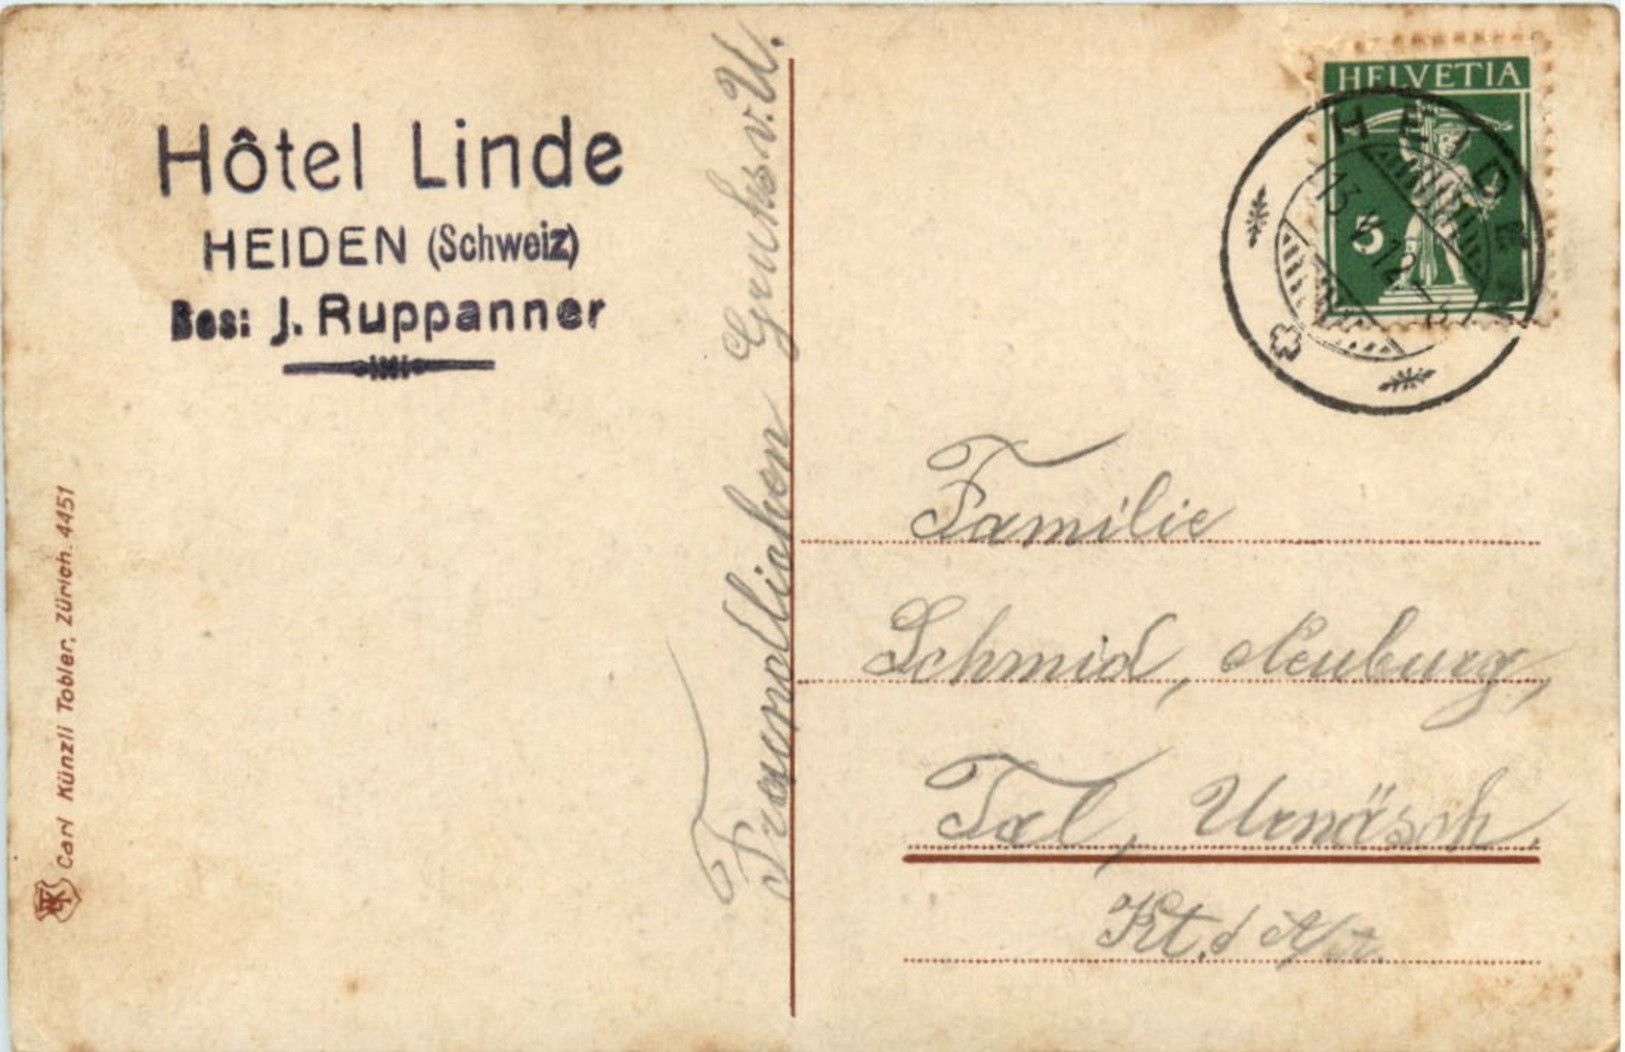 Hôtel Linde
HEIDEN (Schweiz)
Bes: J. Ruppanner
Carl Künzli Tobler, Zürich. 4451
Freundlichen Gruss v. U.
HELVETIA
5
HEIDEN
Familie
Schmid, Neuburg,
Tal, Urnäsch.
Kt.